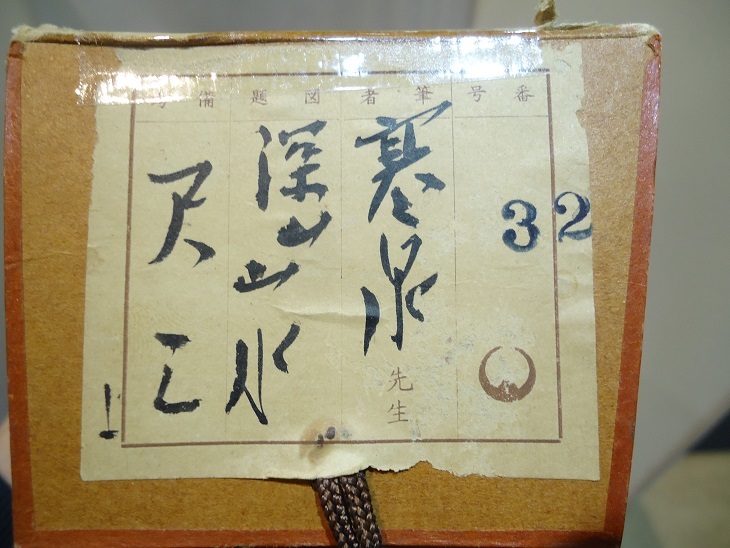 番号
32
筆者
寒泉先生
図題
深山山水
備考
尺三